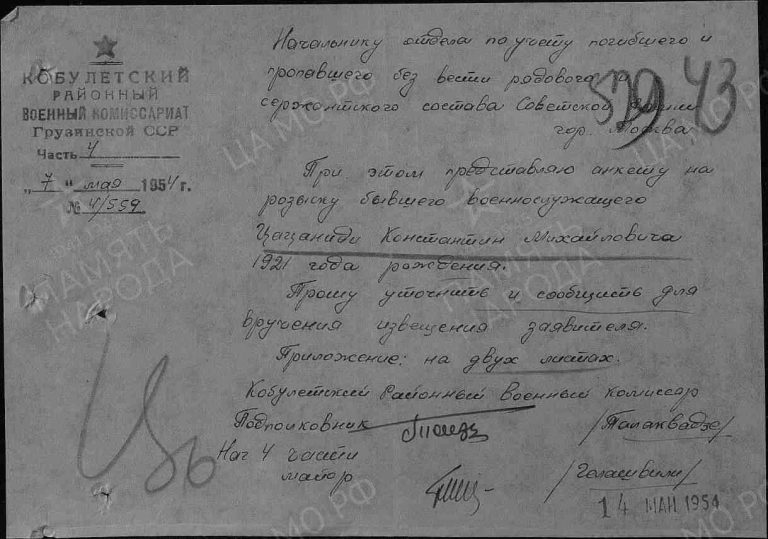 КОБУЛЕТСКИЙ
РАЙОННЫЙ
ВОЕННЫЙ КОМИССАРИАТ
Грузинской ССР
Часть 4
„7" мая 1954 г.
№ 4/559
Начальнику отдела по учету погибшего и
пропавшего без вести рядового и
сержантского состава Советской Армии
гор. Москва
43
При этом представляю анкету на
розыск бывшего военнослужащего
Цацаниди Константин Михайловича
1921 года рождения.
Прошу уточнить и сообщить для
вручения извещения заявителя.
Приложение: на двух листах.
Кобулетский Районный Военный Комиссар
Подполковник /Талаквадзе/
Нач 4 части
майор /Голашвили/
14 МАЙ 1954
ЦАМО РФ
ПАМЯТЬ
НАРОДА